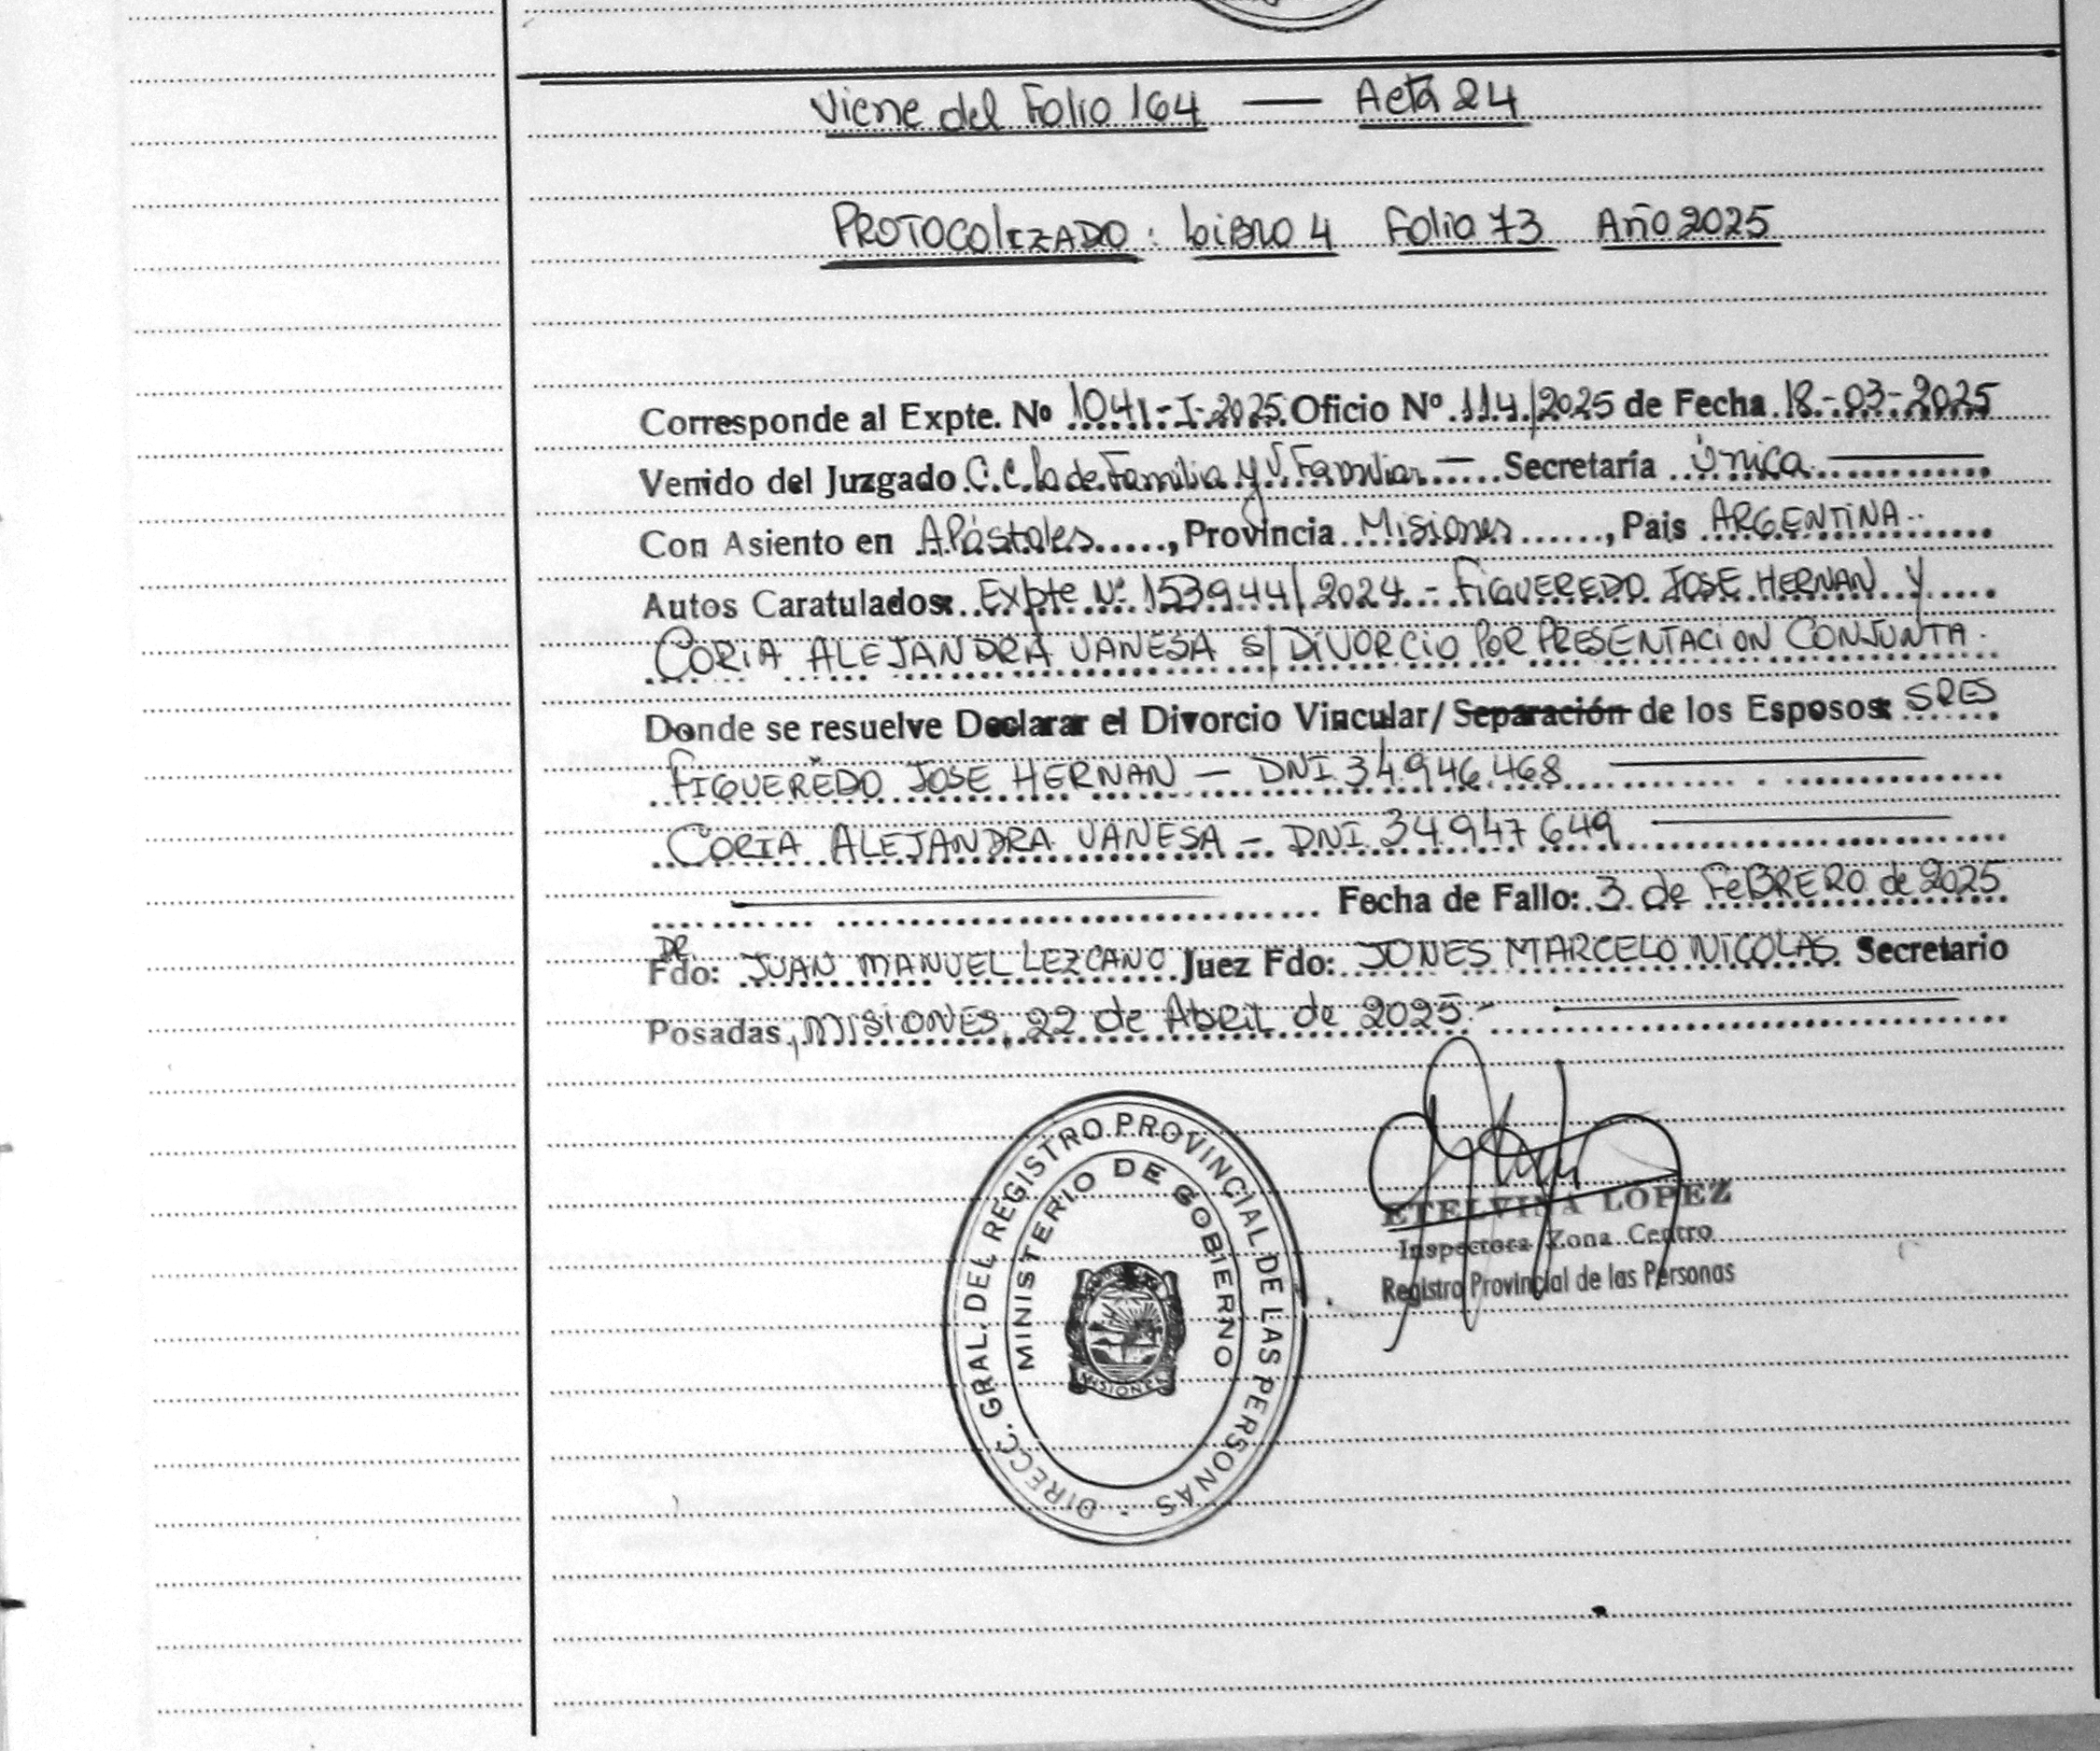 Viene del Folio 164 — Acta 24
PROTOCOLIZADO: LIBRO 4 Folio 73 Año 2025
Corresponde al Expte. Nº 1041-I-2025 Oficio Nº 114/2025 de Fecha 18-03-2025
Venido del Juzgado C.C.L de Familia y V. Familiar — Secretaría Única
Con Asiento en Apóstoles, Provincia Misiones, Pais ARGENTINA
Autos Caratulados: Expte Nº 153944/2024 - FIGUEREDO JOSE HERNAN y
CORIA ALEJANDRA VANESA s/ DIVORCIO POR PRESENTACION CONJUNTA.
Donde se resuelve Declarar el Divorcio Vincular/Separación de los Esposos: SRES
FIGUEREDO JOSE HERNAN — DNI 34.946.468
CORIA ALEJANDRA VANESA — DNI 34947649
Fecha de Fallo: 3 de FeBRERO de 2025
DR.
Fdo: JUAN MANUEL LEZCANO Juez Fdo: JONES MARCELO NICOLAS Secretario
Posadas, MISIONES, 22 de Abril de 2025.-
DIRECC. GRAL. DEL REGISTRO PROVINCIAL DE LAS PERSONAS
MINISTERIO DE GOBIERNO
MISIONES
ETELVINA LOPEZ
Inspectora Zona Centro
Registro Provincial de las Personas